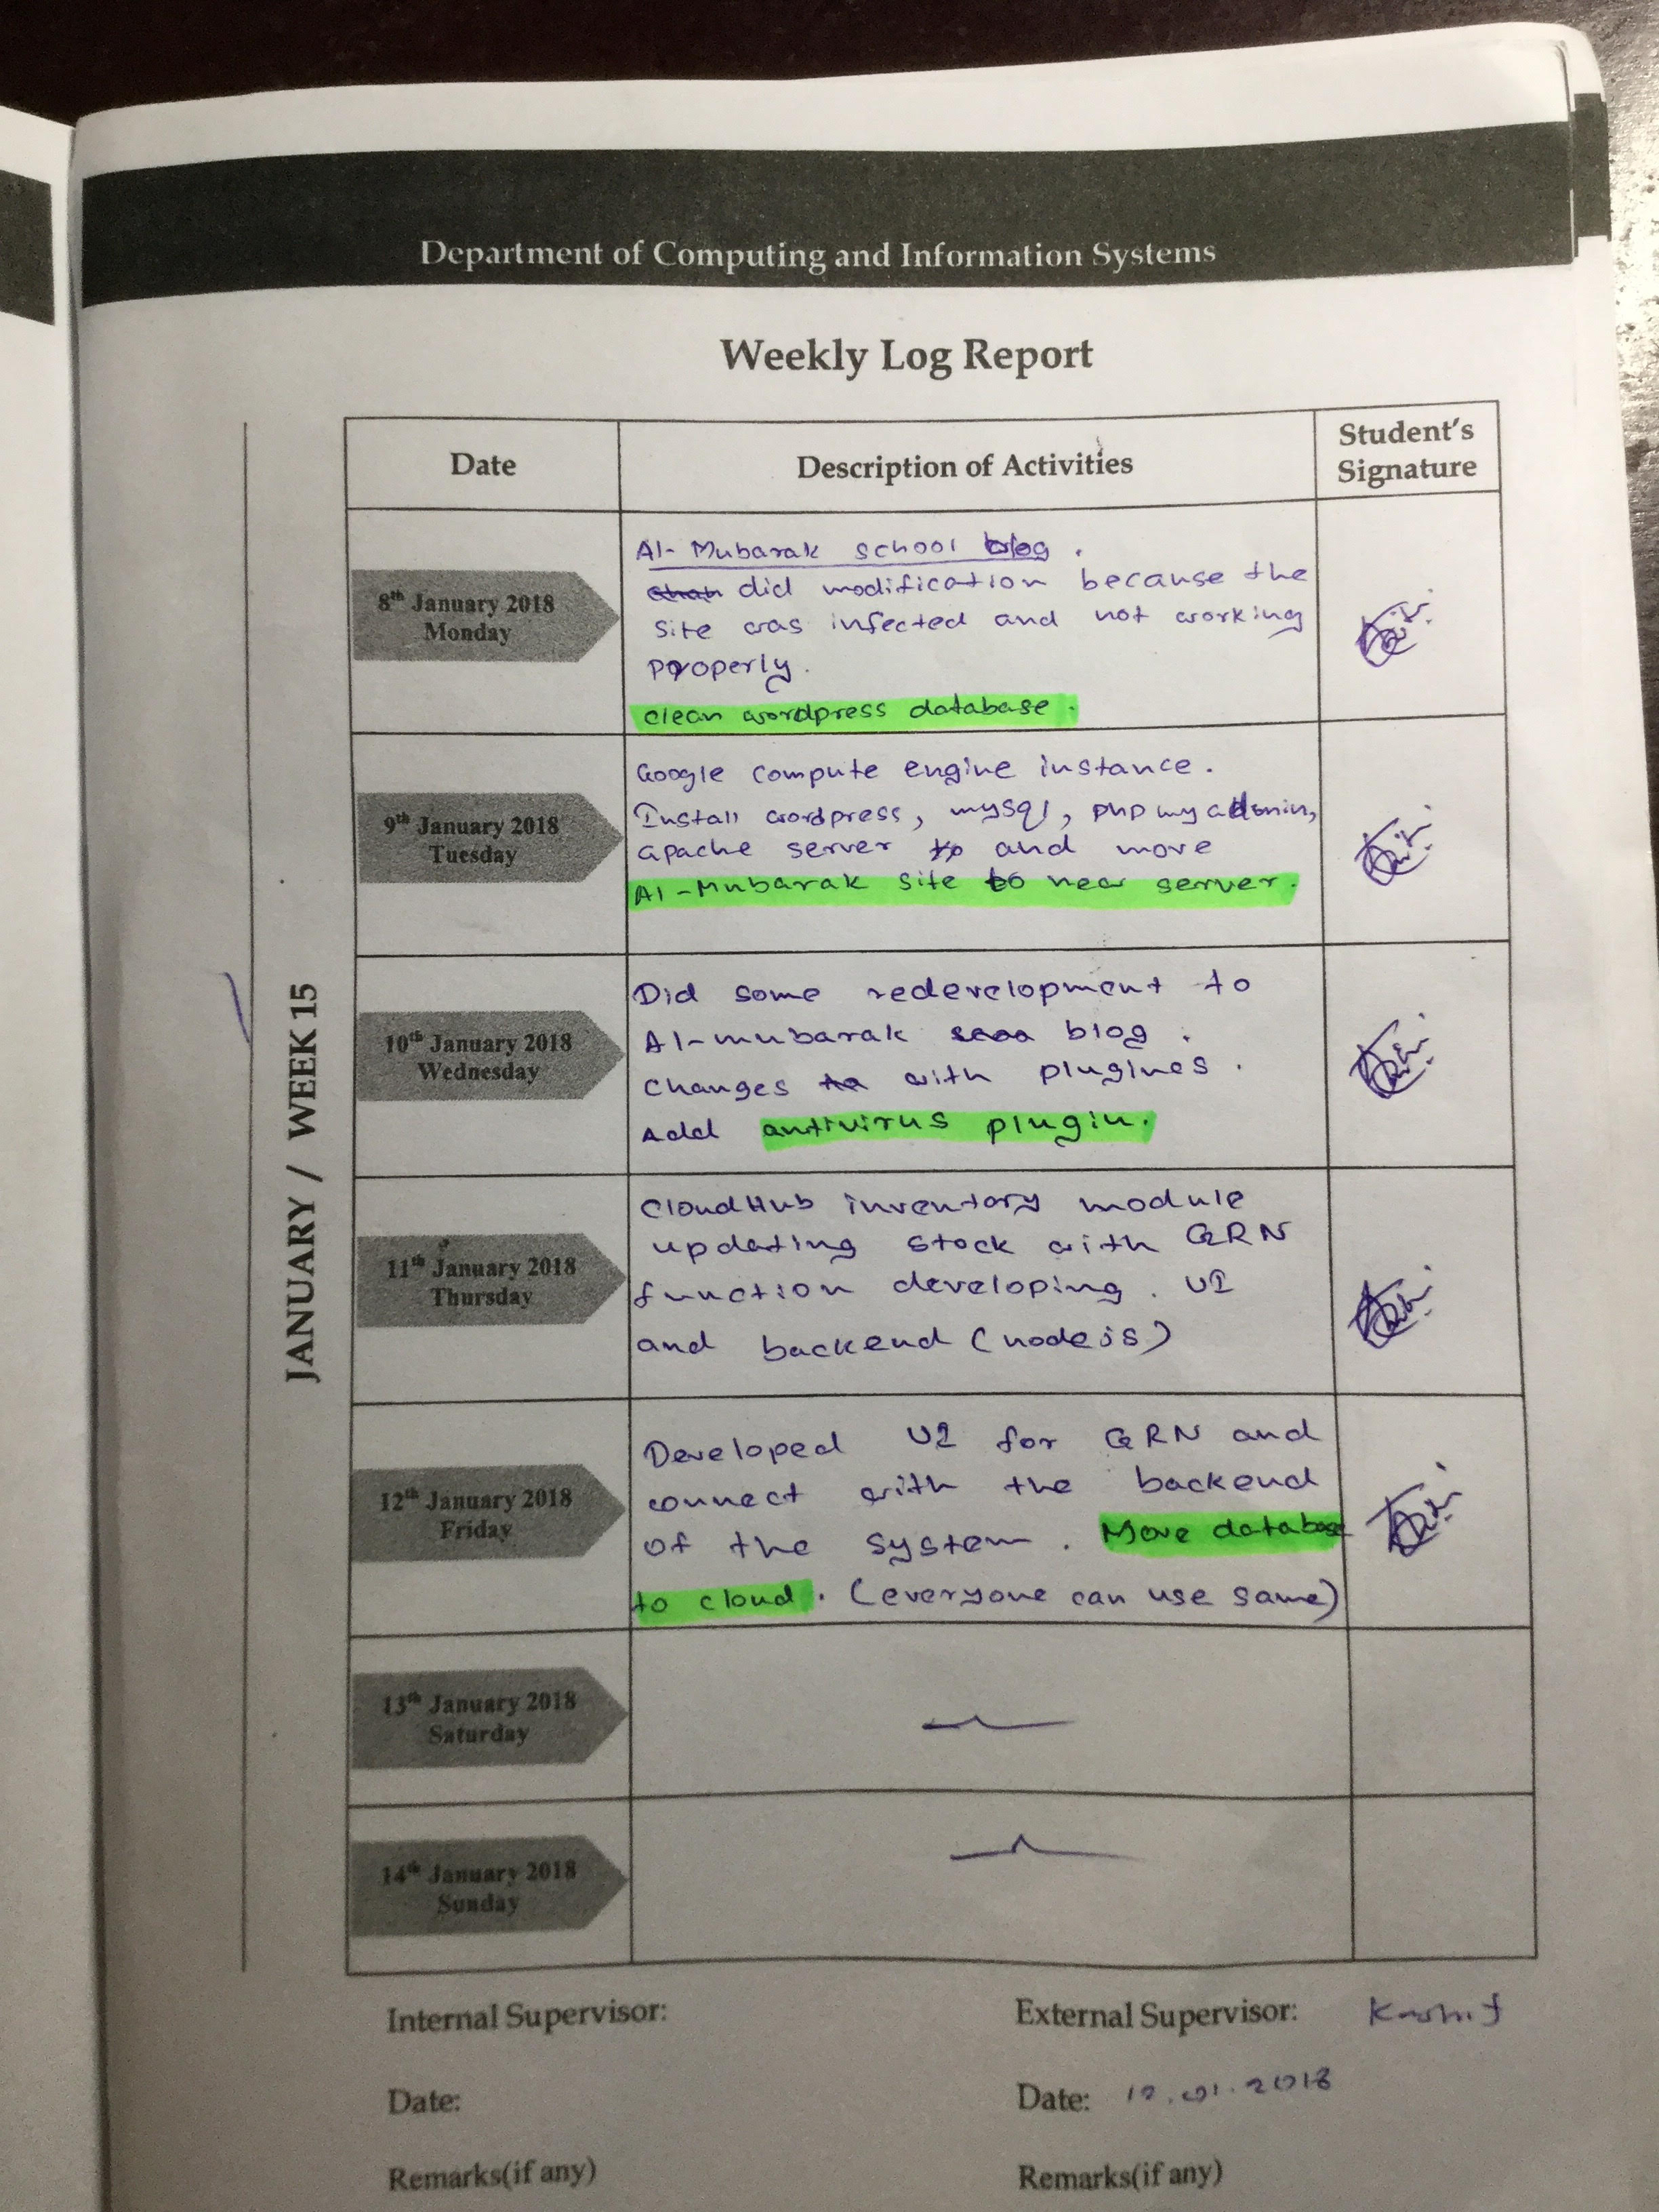 Department of Computing and Information Systems
Weekly Log Report
JANUARY / WEEK 15
Date
Description of Activities
Student's
Signature
8th January 2018
Monday
Al-Mubarak school blog .
did modification because the
site was infected and not working
properly.
clean wordpress database .
9th January 2018
Tuesday
Google compute engine instance .
Install wordpress, mysql, phpmyadmin,
apache server and move
Al-Mubarak site to new server.
10th January 2018
Wednesday
Did some redevelopment to
Al-mubarak blog .
changes with plugines .
Add antivirus plugin.
11th January 2018
Thursday
CloudHub inventory module
updating stock with GRN
function developing . UI
and backend (nodejs)
12th January 2018
Friday
Developed UI for GRN and
connect with the backend
of the system . Move database
to cloud . (everyone can use same)
13th January 2018
Saturday
14th January 2018
Sunday
Internal Supervisor:
External Supervisor:
Date:
Date: 12.01.2018
Remarks(if any)
Remarks(if any)